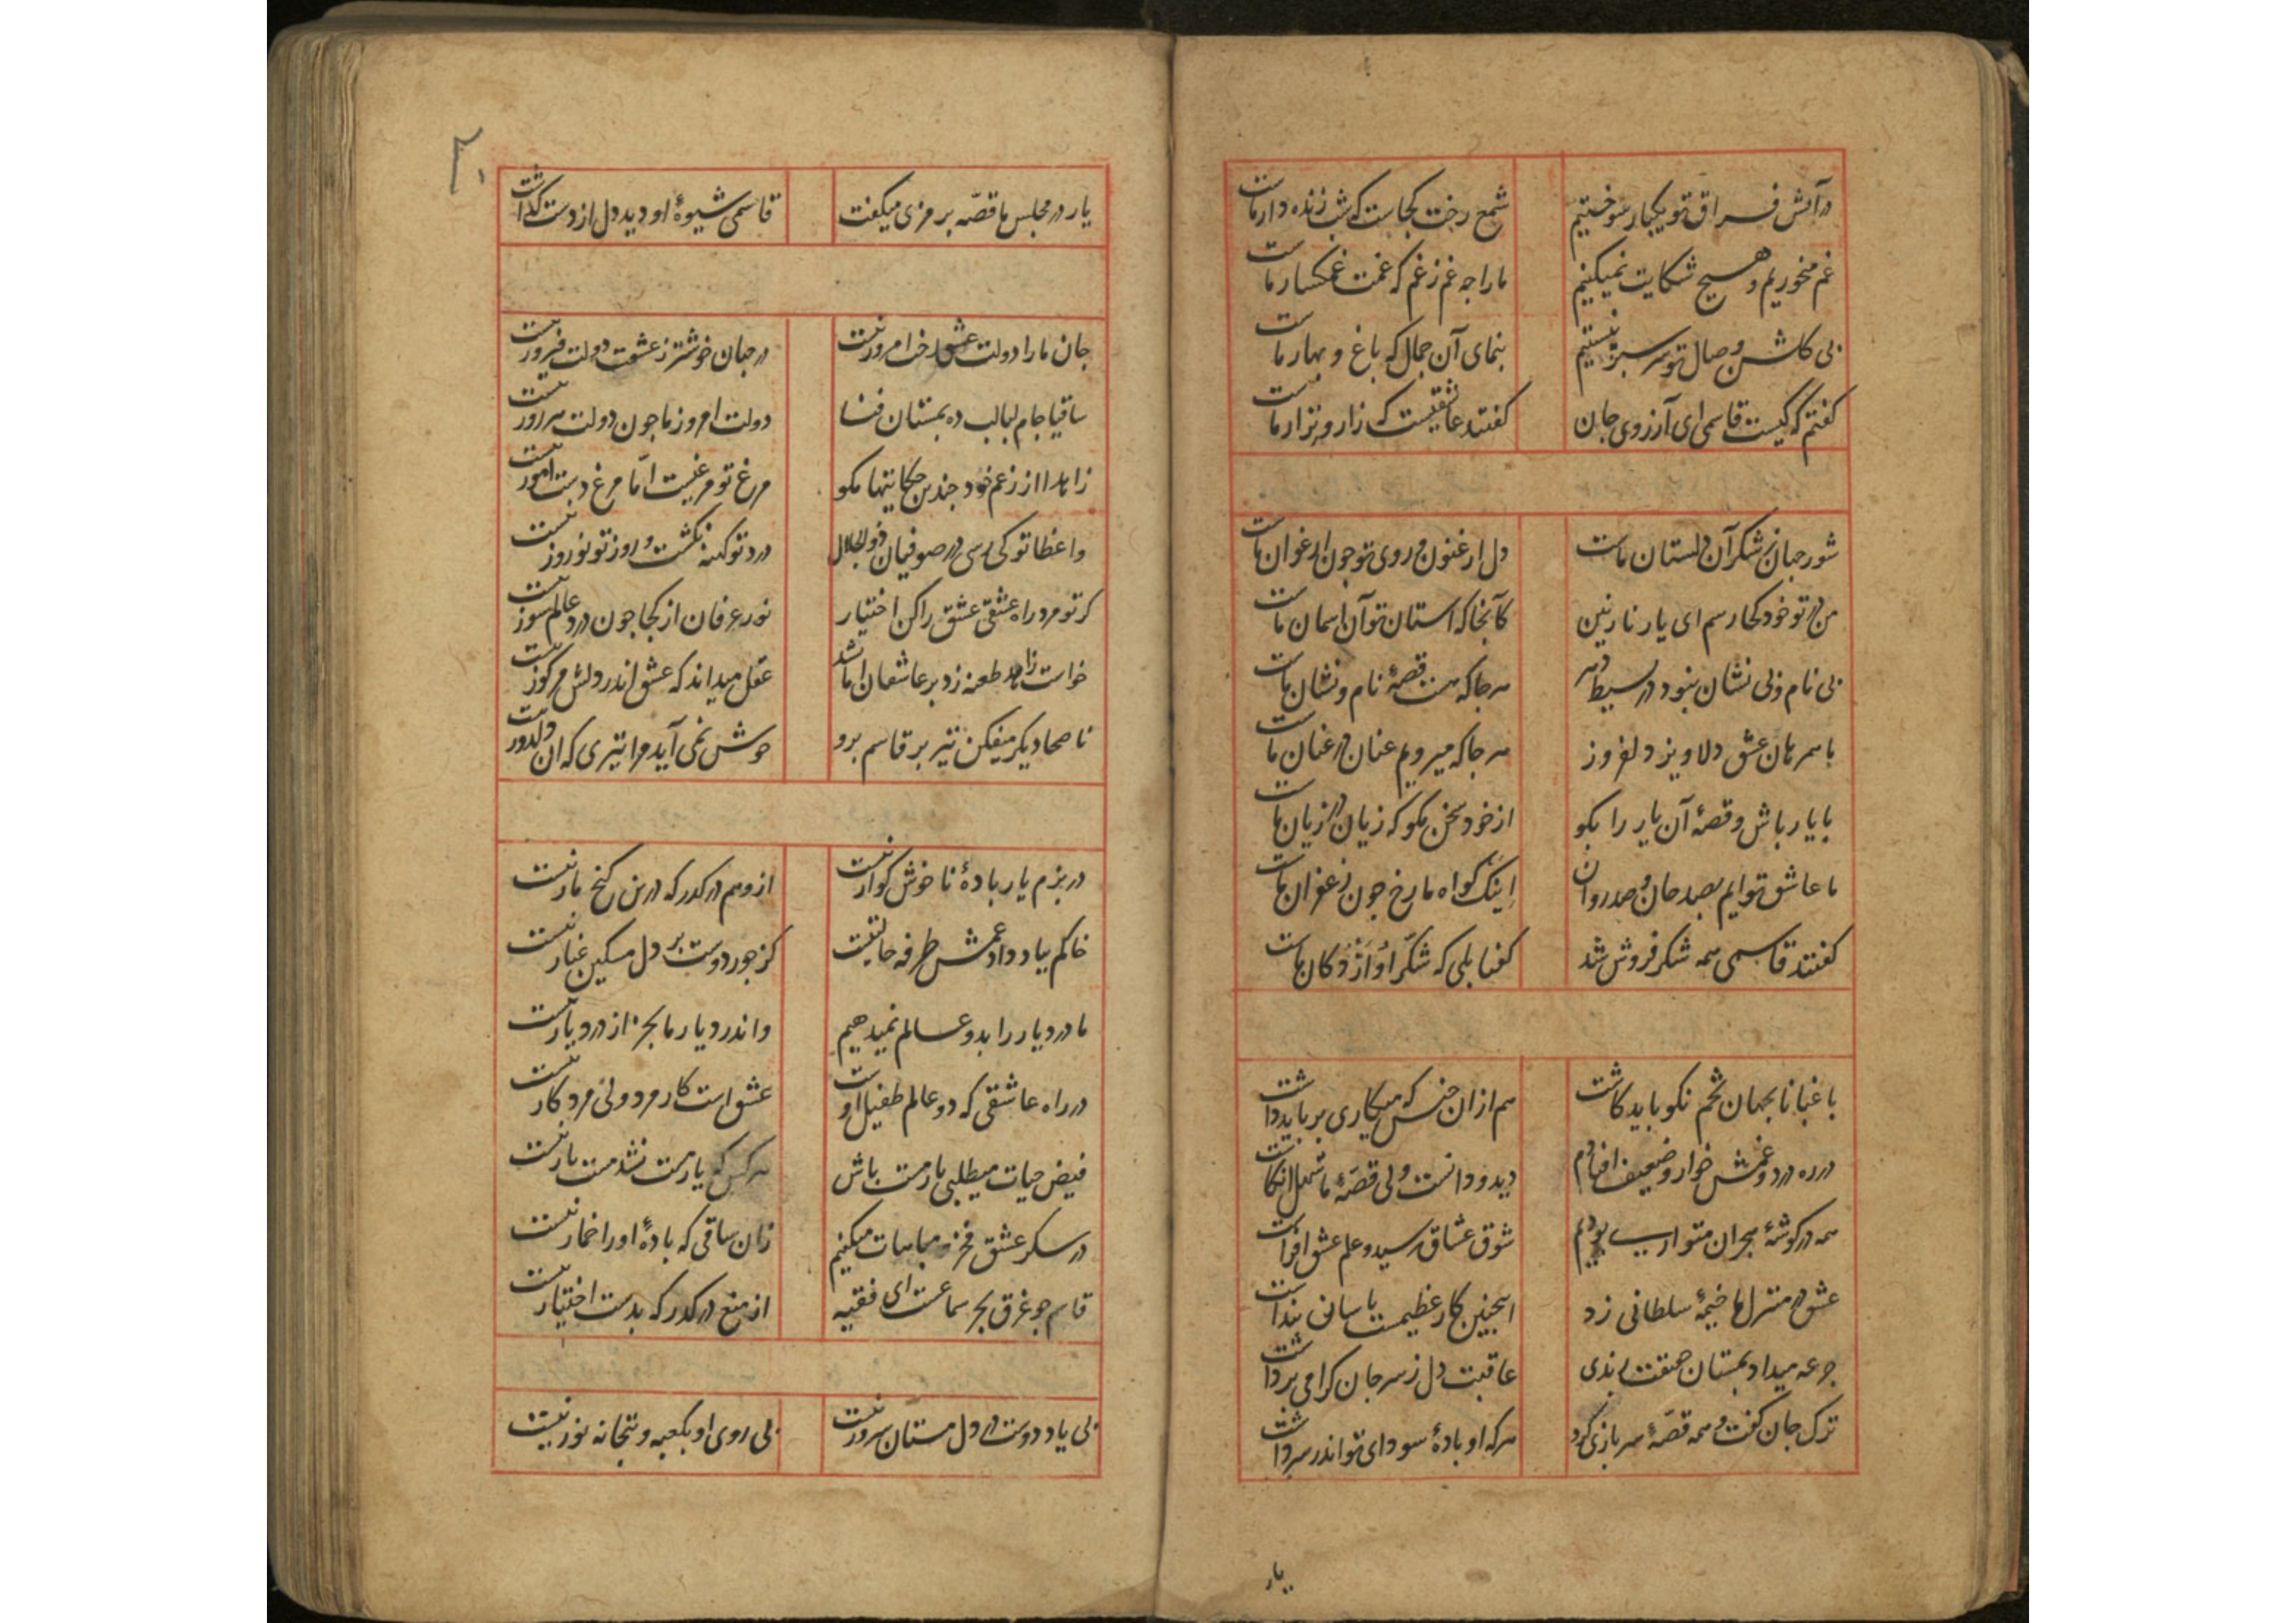 در آتش فراق تو یکبار سوختیم شمع رخت کجاست که شب زنده دار ماست
غم میخوریم و هیچ شکایت نمیکنیم ما را چه غم ز غم که غمت غمکسار ماست
بی کلشن وصال تو سرسبز نیستیم بنمای آن جمال که باغ و بهار ماست
کفتم که کیست قاسمی ای آرزوی جان کفتند عاشقیست که زار و نزار ماست
شور جهان ز شکر آن دلستان ماست دل ارغنون و روی تو چون ارغوان ماست
من در تو خود کجا رسم ای یار نازنین کآنجا که استان تو آن اسمان ماست
بی نام و بی نشان نبود در بسیط دهر هر جا که هست قصهٔ نام و نشان ماست
با همرهان عشق دلاویز دلفروز هر جا که میرویم عنان در عنان ماست
با یار باش و قصهٔ آن یار را بکو از خود سخن مکو که زیان در زیان ماست
ما عاشق توایم بصد جان و صد روان اینک کواه ما رخ چون زعفران ماست
کفتند قاسمی همه شکر فروش شد کفتا بلی که شکر او از دکان ماست
باغبانا بجهان تخم نکو باید کاشت هم ازان جنس که میکاری بر باید داشت
در ره درد و غمش خوار و ضعیف افتادم دید و دانست ولی قصهٔ ما سهل انکاشت
همه در کوشهٔ هجران متواری بودیم شوق عشاق رسید و علم عشق افراشت
عشق در منزل ما خیمهٔ سلطانی زد اینچنین کار عظیمست باسانی نتداشت
جرعه میداد بمستان حقیقت رندی عاقبت دل ز سر جان کرامی برداشت
ترک جان کفت و همه قصهٔ سربازی کرد هرکه او بادهٔ سودای تو اندر سر داشت
یار
۲۰
یار در مجلس ما قصه برمزی میکفت قاسمی شیوهٔ او دید دل از دست کذاشت
جان ما را دولت عشق رخت امروز نیست در جهان خوشتر ز عشقت دولت فیروز نیست
ساقیا جام لبالب ده بمستان فنا دولت امروز ما چون دولت هر روز نیست
زاهدا از زعم خود چندین حکایتها مکو مرغ تو مرغیست اما مرغ دست اموز نیست
واعظا تو کی رسی در صوفیان ذو الجلال درد تو کهنه نکشت و روز تو نوروز نیست
کر تو مرد راه عشقی عشق را کن اختیار نور عرفان از کجا چون درد عالم سوز نیست
خواست زاهد طعنه زد بر عاشقان اما نشد عقل میداند که عشق اندر دلش مرکوز نیست
ناصحا دیکر میفکن تیر بر قاسم برو خوش نمی آید مرا تیری که ان دلدوز نیست
در بزم یار بادهٔ ناخوش کوار نیست از وهم در کذر که درین کنج مار نیست
خاکم بباد داد غمش طرفه حالتیست کز جور دوست بر دل مسکین غبار نیست
ما درد یار را بدو عالم نمیدهیم واندر دیار ما بجز از درد یار نیست
در راه عاشقی که دو عالم طفیل اوست عشق است کار مرد ولی مرد کار نیست
فیض حیات میطلبی یار مست باش هرکس که یار مست نشد مست یار نیست
در سکر عشق فخر و مباهات میکنیم زان ساقی که بادهٔ او را خمار نیست
قاسم چو غرق بحر سماعست ای فقیه از منع در کذر که بدست اختیار نیست
بی یاد دوست در دل مستان سرور نیست بی روی او بکعبه و بتخانه نور نیست